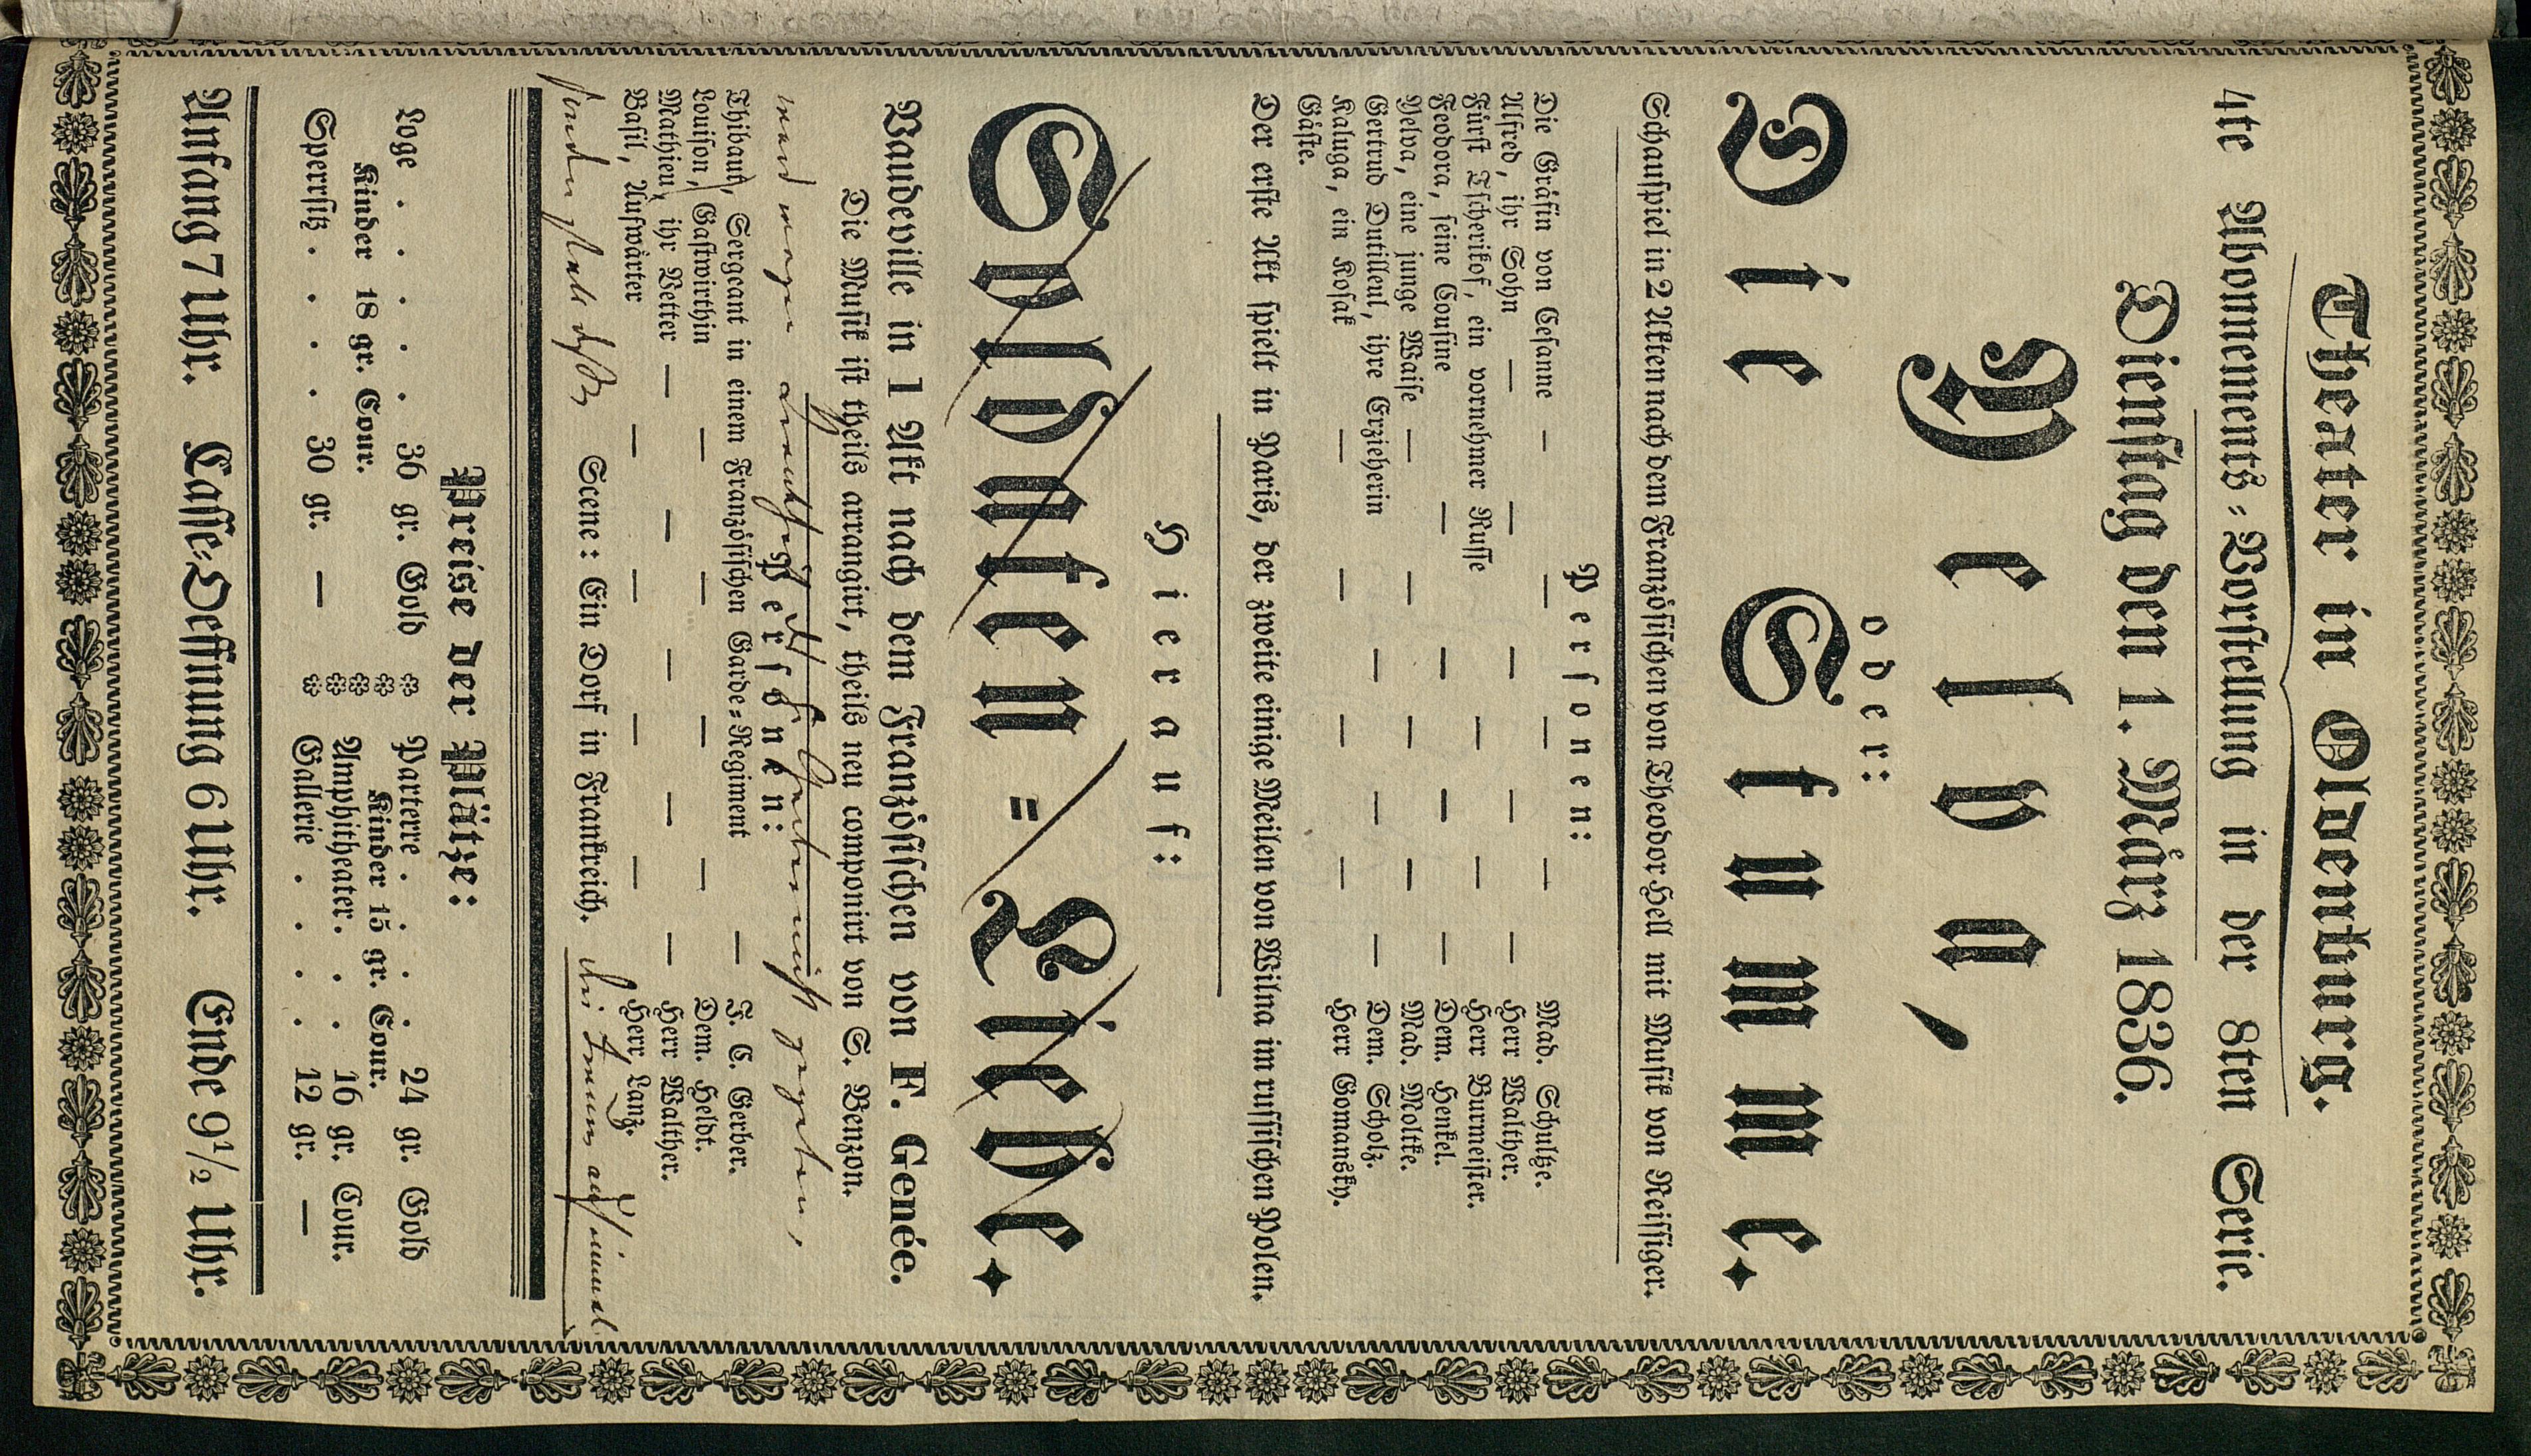 Theater in Oldenburg.
4te Abonnements-Vorstellung in der 8ten Serie.
Dienstag den 1. März 1836.
Yelva,
oder:
Die Stumme.
Schauspiel in 2 Akten nach dem Französischen von Theodor Hell mit Musik von Reissiger.
Personen:
Die Gräfin von Cesanne — — — — Mad. Schultze.
Alfred, ihr Sohn — — — — — Herr Walther.
Fürst Tscherikof, ein vornehmer Russe — — Herr Burmeister.
Feodora, seine Cousine — — — — Dem. Henkel.
Yelva, eine junge Waise — — — — Mad. Moltke.
Gertrud Dutilleul, ihre Erzieherin — — — Dem. Scholz.
Kaluga, ein Kosak — — — — Herr Gomansky.
Gäste.
Der erste Akt spielt in Paris, der zweite einige Meilen von Wilna im russischen Polen.
Hierauf:
Soldaten-Liebe.
Vaudeville in 1 Akt nach dem Französischen von F. Genée.
Die Musik ist theils arrangirt, theils neu componirt von S. Benzon.
Personen:
wegen nicht gegeben,
Thibaut, Sergeant in einem Französischen Garde-Regiment — F. C. Gerber.
Louison, Gastwirthin — — — — Dem. Heldt.
Mathieu, ihr Vetter — — — — — Herr Walther.
Basil, Aufwärter — — — — Herr Lanz.
Scene: Ein Dorf in Frankreich.
Preise der Plätze:
Loge . . . . . 36 gr. Gold
Kinder 18 gr. Cour.
Sperrsitz . . . . 30 gr. —
Parterre . . . . 24 gr. Gold
Kinder 15 gr. Cour.
Amphitheater . . . 16 gr. Cour.
Gallerie . . . . 12 gr. —
Anfang 7 Uhr. Casse-Oeffnung 6 Uhr. Ende 9½ Uhr.